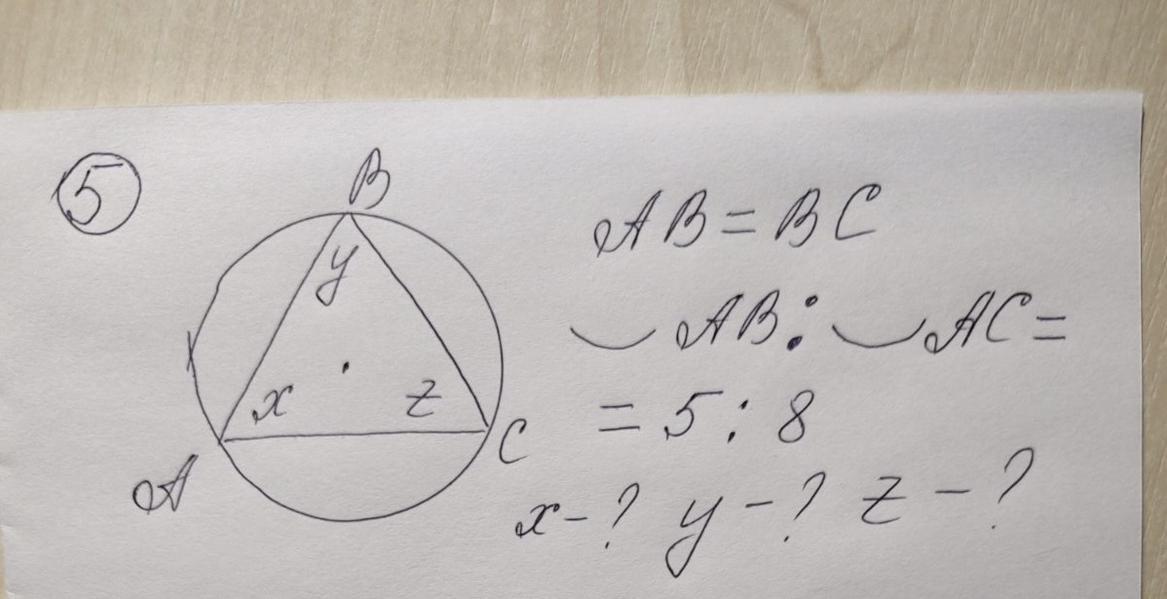 5
B
y
x
z
A
C
AB = BC
◡ AB : ◡ AC =
= 5 : 8
x - ? y - ? z - ?